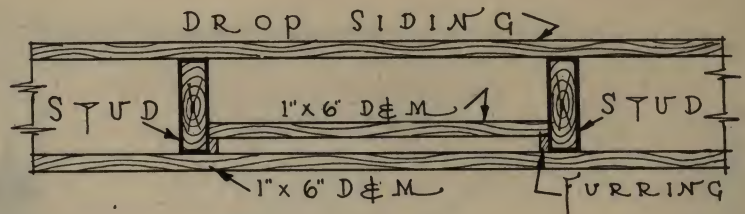 DROP SIDING
STUD
1" x 6" D & M
STUD
1" x 6" D & M
FURRING